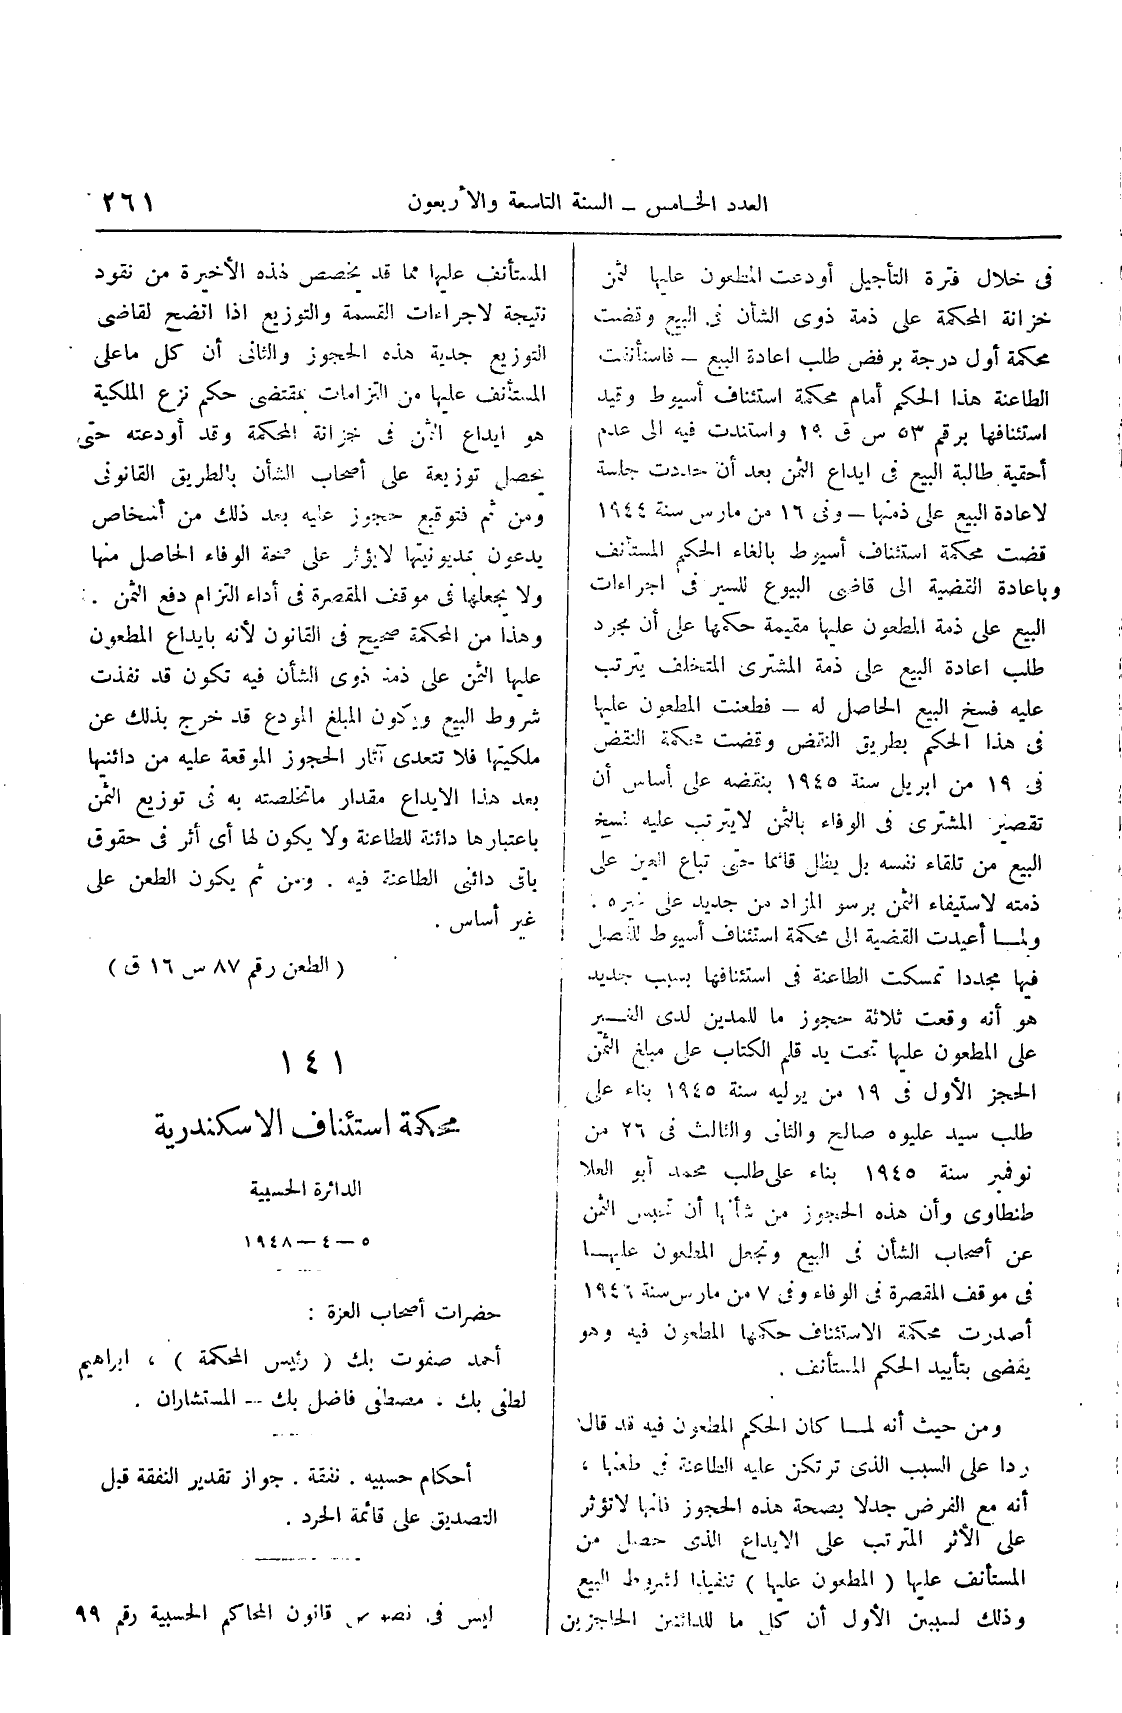 العدد الخامس – السنة التاسعة والأربعون
٢٦١
فى خلال فترة التأجيل أودعت المطعون عليها ثمن
خزانة المحكمة على ذمة ذوى الشأن فى البيع وقضت
محكمة أول درجة برفض طلب اعادة البيع – فاستأنفت
الطاعنة هذا الحكم أمام محكمة استئناف أسيوط وقيد
استئنافها برقم ٥٣ س ق ١٩ واستندت فيه الى عدم
أحقية طالبة البيع فى ايداع الثمن بعد أن حددت جلسة
لاعادة البيع على ذمتها – وفى ١٦ من مارس سنة ١٩٤٤
قضت محكمة استئناف أسيوط بالغاء الحكم المستأنف
وباعادة القضية الى قاضى البيوع للسير فى اجراءات
البيع على ذمة المطعون عليها مقيمة حكمها على أن مجرد
طلب اعادة البيع على ذمة المشترى المتخلف يترتب
عليه فسخ البيع الحاصل له – فطعنت المطعون عليها
فى هذا الحكم بطريق النقض وقضت محكمة النقض
فى ١٩ من ابريل سنة ١٩٤٥ بنقضه على أساس أن
تقصير المشترى فى الوفاء بالثمن لايترتب عليه فسخ
البيع من تلقاء نفسه بل يظل قائما حتى تباع العين على
ذمته لاستيفاء الثمن برسو المزاد من جديد على غيره .
ولمـا أعيدت القضية الى محكمة استئناف أسيوط للفصل
فيها مجددا تمسكت الطاعنة فى استئنافها بسبب جديد
هو أنه وقعت ثلاثة حجوز ما للمدين لدى الغـير
على المطعون عليها تحت يد قلم الكتاب على مبلغ الثمن
الحجز الأول فى ١٩ من يوليه سنة ١٩٤٥ بناء على
طلب سيد عليوه صالح والثانى والثالث فى ٢٦ من
نوفمبر سنة ١٩٤٥ بناء على طلب محمد أبو العلا
طنطاوى وأن هذه الحجوز من شأنها أن تحبس الثمن
عن أصحاب الشأن فى البيع وتجعل المطعون عليهـا
فى موقف المقصرة فى الوفاء وفى ٧ من مارس سنة ١٩٤٦
أصدرت محكمة الاستئناف حكمها المطعون فيه وهو
يقضى بتأييد الحكم المستأنف .
ومن حيث أنه لمـا كان الحكم المطعون فيه قد قال
ردا على السبب الذى ترتكن عليه الطاعنة فى طعنها ،
أنه مع الفرض جدلا بصحة هذه الحجوز فانها لاتؤثر
على الأثر المترتب على الايداع الذى حصل من
المستأنف عليها ( المطعون عليها ) تنفيذا لشروط البيع
وذلك لسببين الأول أن كل ما للدائنين الحاجزين
المستأنف عليها مما قد يخصص لهذه الأخيرة من نقود
نتيجة لاجراءات القسمة والتوزيع اذا اتضح لقاضى
التوزيع جدية هذه الحجوز والثانى أن كل ماعلى
المستأنف عليها من التزامات بمقتضى حكم نزع الملكية
هو ايداع الثمن فى خزانة المحكمة وقد أودعته حتى
يحصل توزيعة على أصحاب الشأن بالطريق القانونى
ومن ثم فتوقيع حجوز عليه بعد ذلك من أشخاص
يدعون بمديونيتها لايؤثر على صحة الوفاء الحاصل منها
ولا يجعلها فى موقف المقصرة فى أداء التزام دفع الثمن .
وهذا من المحكمة صحيح فى القانون لأنه بايداع المطعون
عليها الثمن على ذمة ذوى الشأن فيه تكون قد نفذت
شروط البيع ويكون المبلغ المودع قد خرج بذلك عن
ملكيتها فلا تتعدى آثار الحجوز الموقعة عليه من دائنيها
بعد هذا الايداع مقدار ماتخلصته به فى توزيع الثمن
باعتبارها دائنة للطاعنة ولا يكون لها أى أثر فى حقوق
باقى دائنى الطاعنة فيه . ومن ثم يكون الطعن على
غير أساس .
( الطعن رقم ٨٧ س ١٦ ق )
١٤١
محكمة استئناف الاسكندرية
الدائرة الحسبية
٥ – ٤ – ١٩٤٨
حضرات أصحاب العزة :
أحمد صفوت بك ( رئيس المحكمة ) ، ابراهيم
لطفى بك ، مصطفى فاضل بك – المستشاران .
أحكام حسبيه . نفقة . جواز تقدير النفقة قبل
التصديق على قائمة الجرد .
ليس فى نصوص قانون المحاكم الحسبية رقم ٩٩